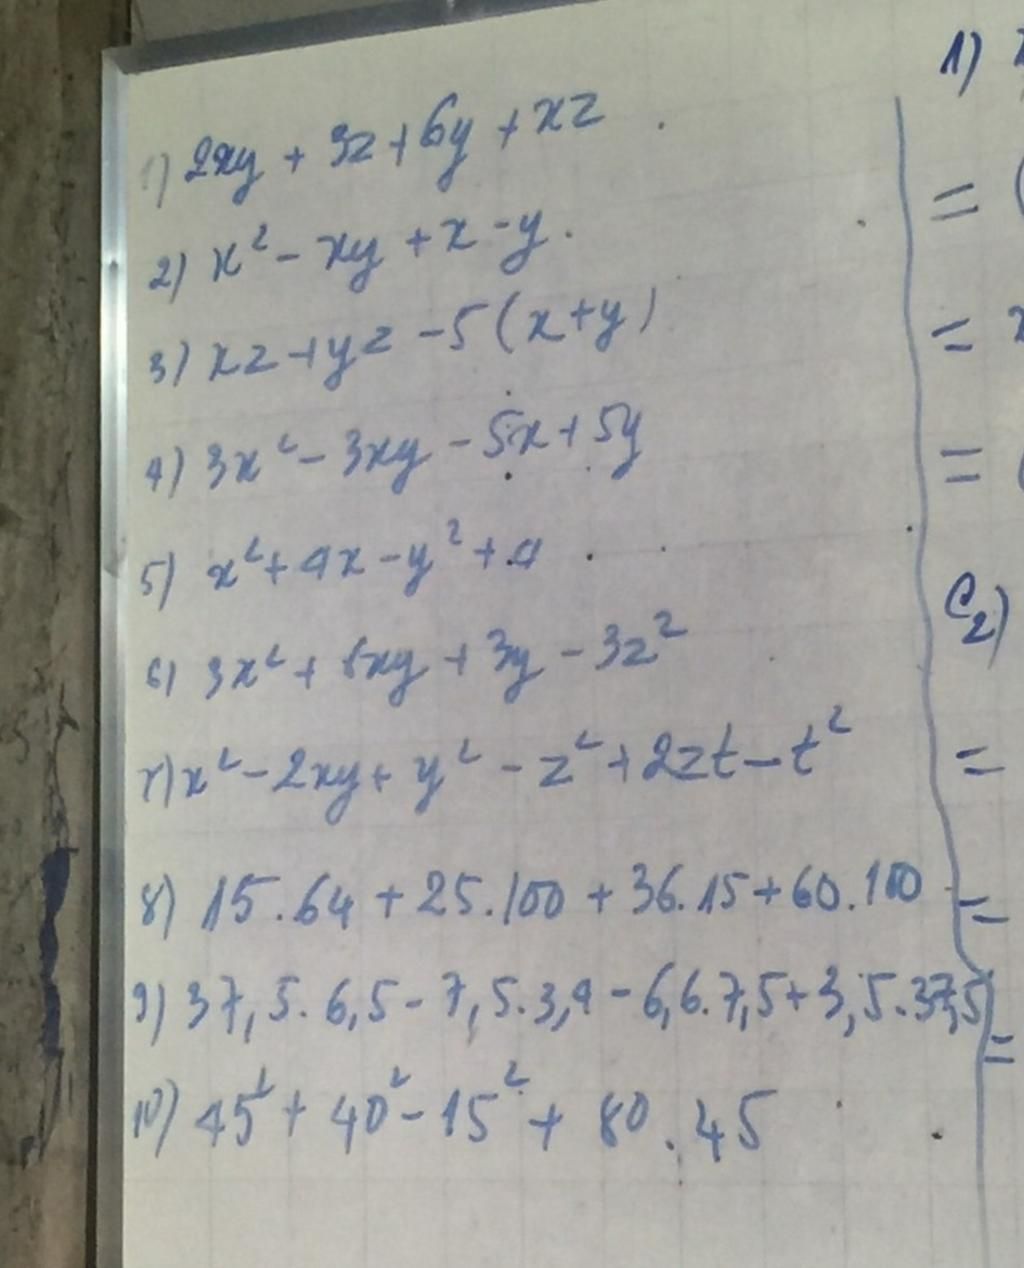 1) 2xy + 3z + 6y + xz
2) x² - xy + x - y.
3) xz + yz - 5(x+y)
4) 3x² - 3xy - 5x + 5y
5) x² + 4x - y² + 4
6) 3x² + 6xy + 3y - 3z²
7) x² - 2xy + y² - z² + 2zt - t²
8) 15.64 + 25.100 + 36.15 + 60.100
9) 37,5.6,5 - 7,5.3,4 - 6,6.7,5 + 3,5.37,5
10) 45² + 40² - 15² + 80.45
1)
= (
=
= (
C2)
=
=
=